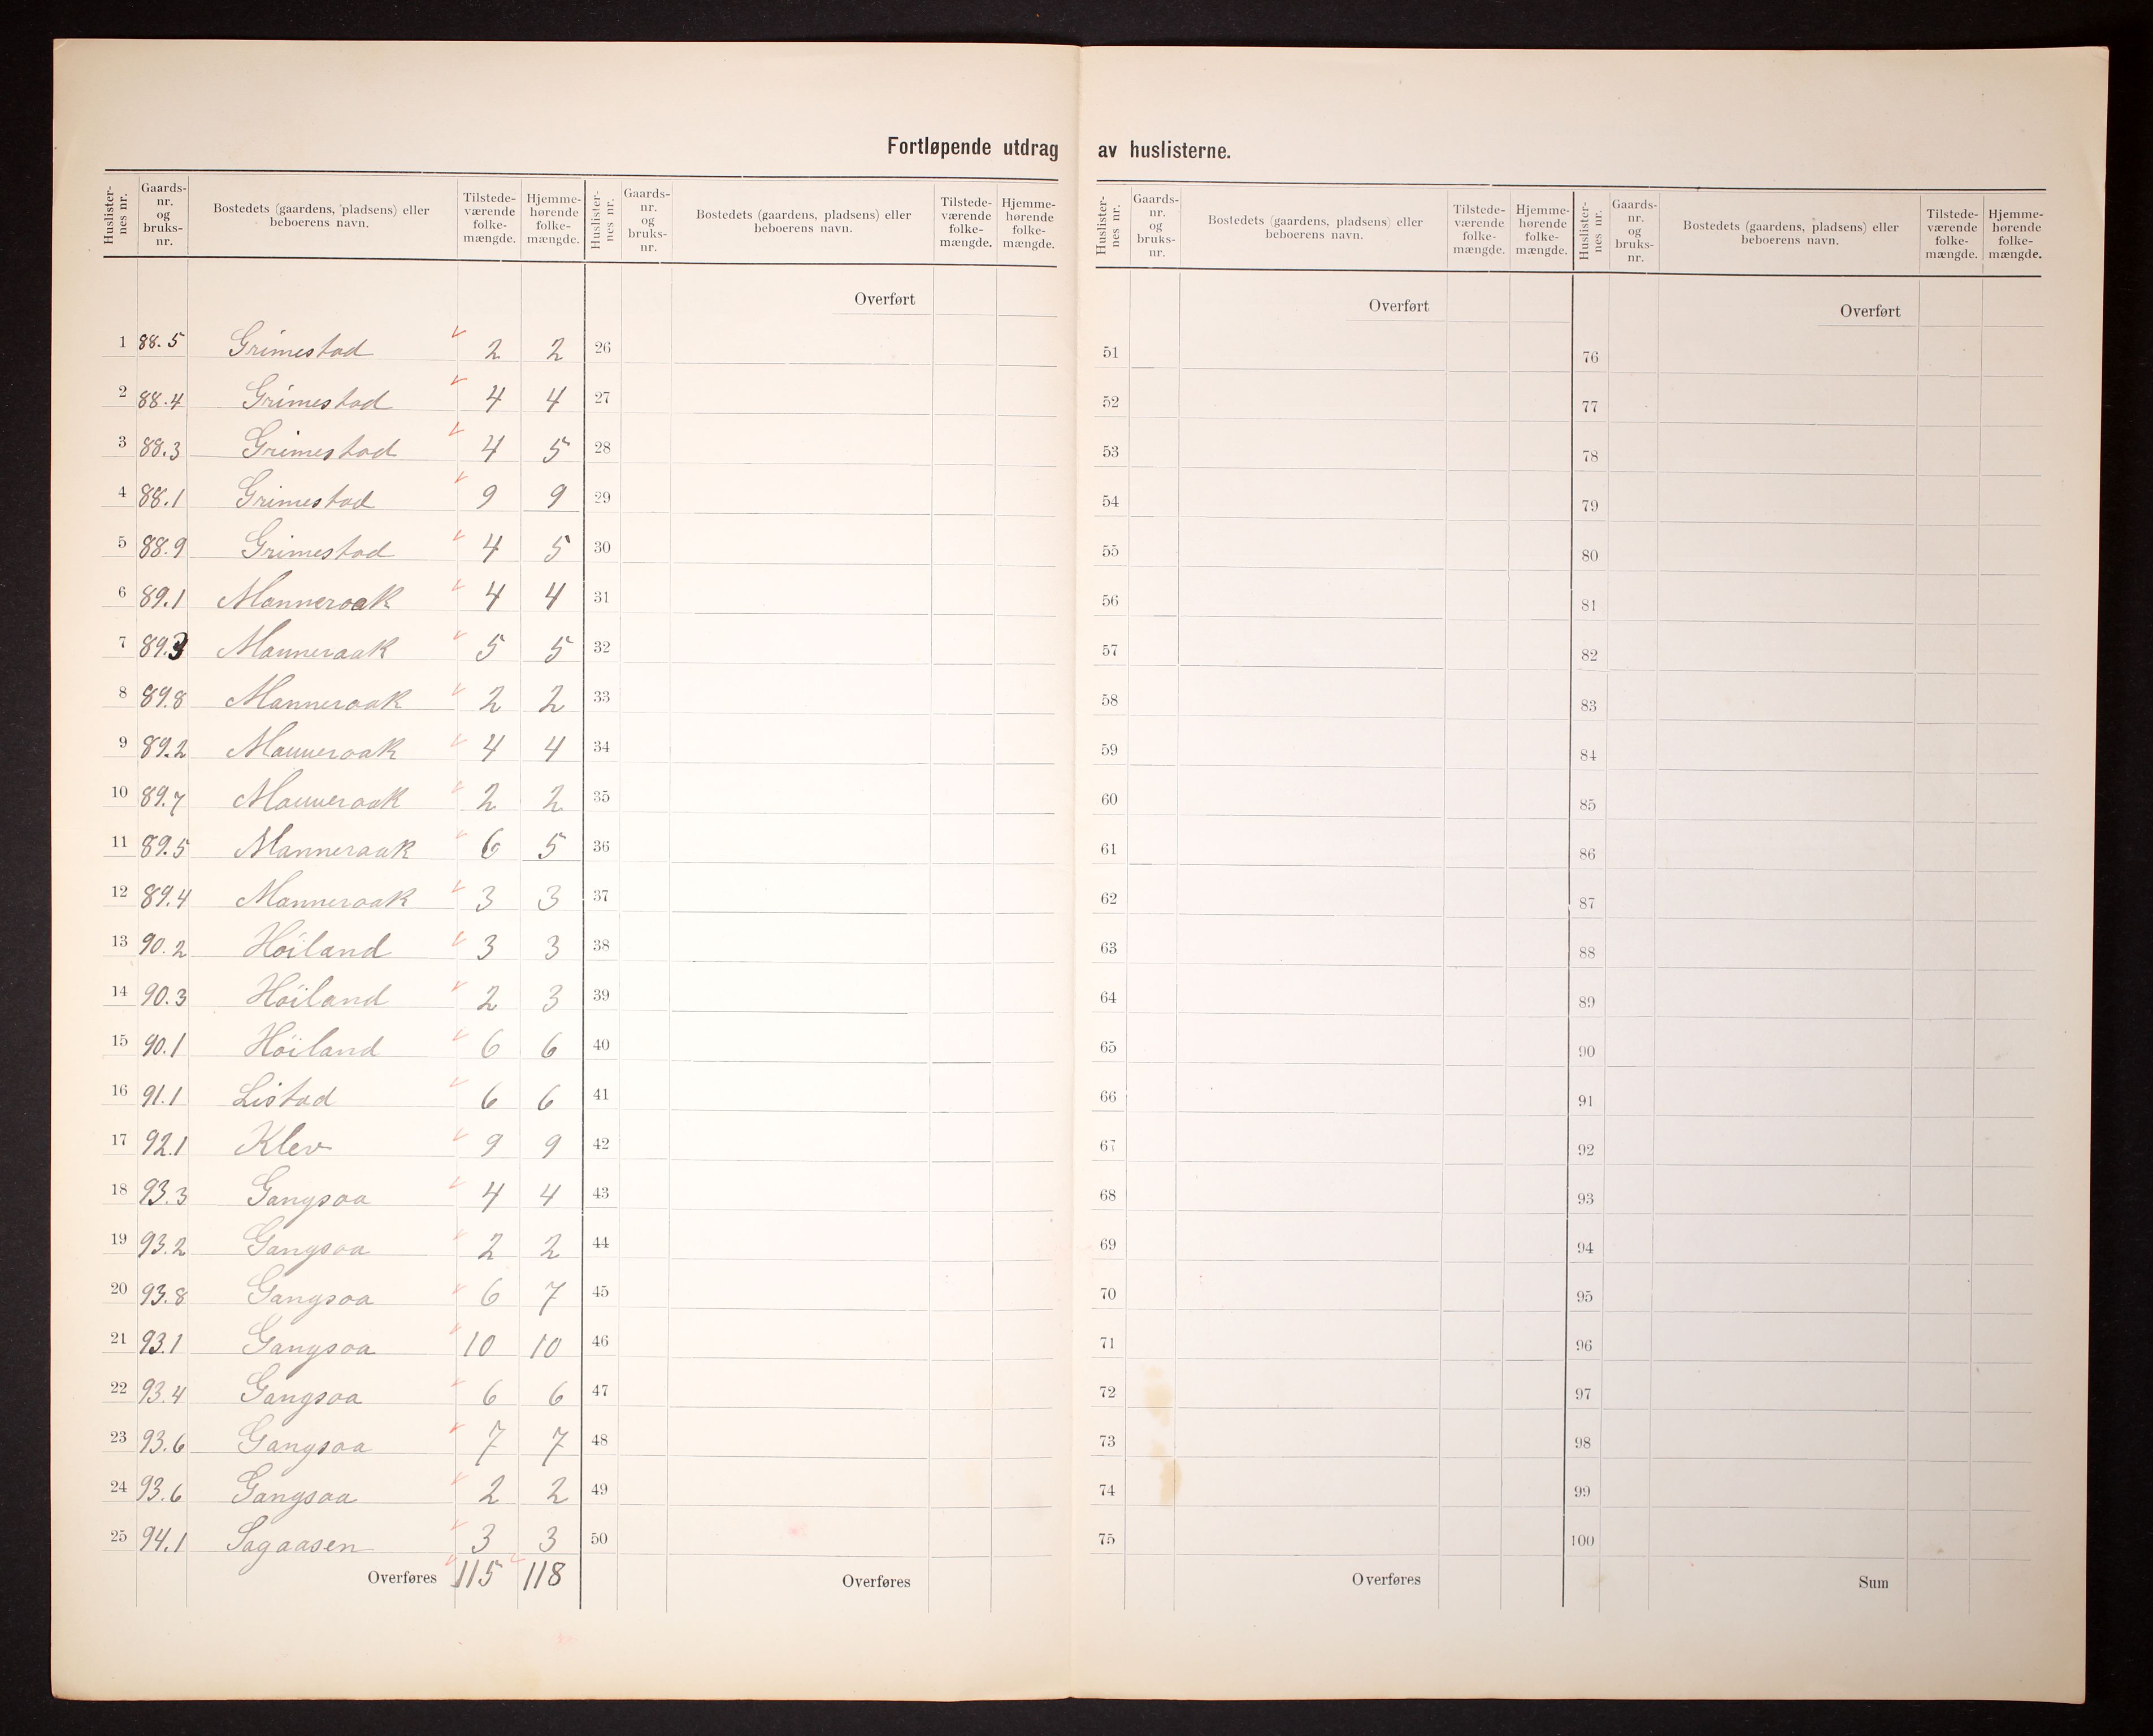 Fortløpende utdrag av huslisterne.
Huslister-nes nr. Gaards-nr. og bruks-nr. Bostedets (gaardens, pladsens) eller beboerens navn. Tilstede-værende folke-mængde. Hjemme-hørende folke-mængde.
1 88.5 Grimestad 2 2
2 88.4 Grimestad 4 4
3 88.3 Grimestad 4 5
4 88.1 Grimestad 9 9
5 88.9 Grimestad 4 5
6 89.1 Manneraak 4 4
7 89.3 Manneraak 5 5
8 89.8 Manneraak 2 2
9 89.2 Manneraak 4 4
10 89.7 Manneraak 2 2
11 89.5 Manneraak 6 5
12 89.4 Manneraak 3 3
13 90.2 Höiland 3 3
14 90.3 Höiland 2 3
15 90.1 Höiland 6 6
16 91.1 Listad 6 6
17 92.1 Klev 9 9
18 93.3 Gangsaa 4 4
19 93.2 Gangsaa 2 2
20 93.8 Gangsaa 6 7
21 93.1 Gangsaa 10 10
22 93.4 Gangsaa 6 6
23 93.6 Gangsaa 7 7
24 93.6 Gangsaa 2 2
25 94.1 Sagaasen 3 3
Overføres 115 118
Huslister-nes nr. Gaards-nr. og bruks-nr. Bostedets (gaardens, pladsens) eller beboerens navn. Tilstede-værende folke-mængde. Hjemme-hørende folke-mængde.
Overført
26
27
28
29
30
31
32
33
34
35
36
37
38
39
40
41
42
43
44
45
46
47
48
49
50
Overføres
Huslister-nes nr. Gaards-nr. og bruks-nr. Bostedets (gaardens, pladsens) eller beboerens navn. Tilstede-værende folke-mængde. Hjemme-hørende folke-mængde.
Overført
51
52
53
54
55
56
57
58
59
60
61
62
63
64
65
66
67
68
69
70
71
72
73
74
75
Overføres
Huslister-nes nr. Gaards-nr. og bruks-nr. Bostedets (gaardens, pladsens) eller beboerens navn. Tilstede-værende folke-mængde. Hjemme-hørende folke-mængde.
Overført
76
77
78
79
80
81
82
83
84
85
86
87
88
89
90
91
92
93
94
95
96
97
98
99
100
Sum